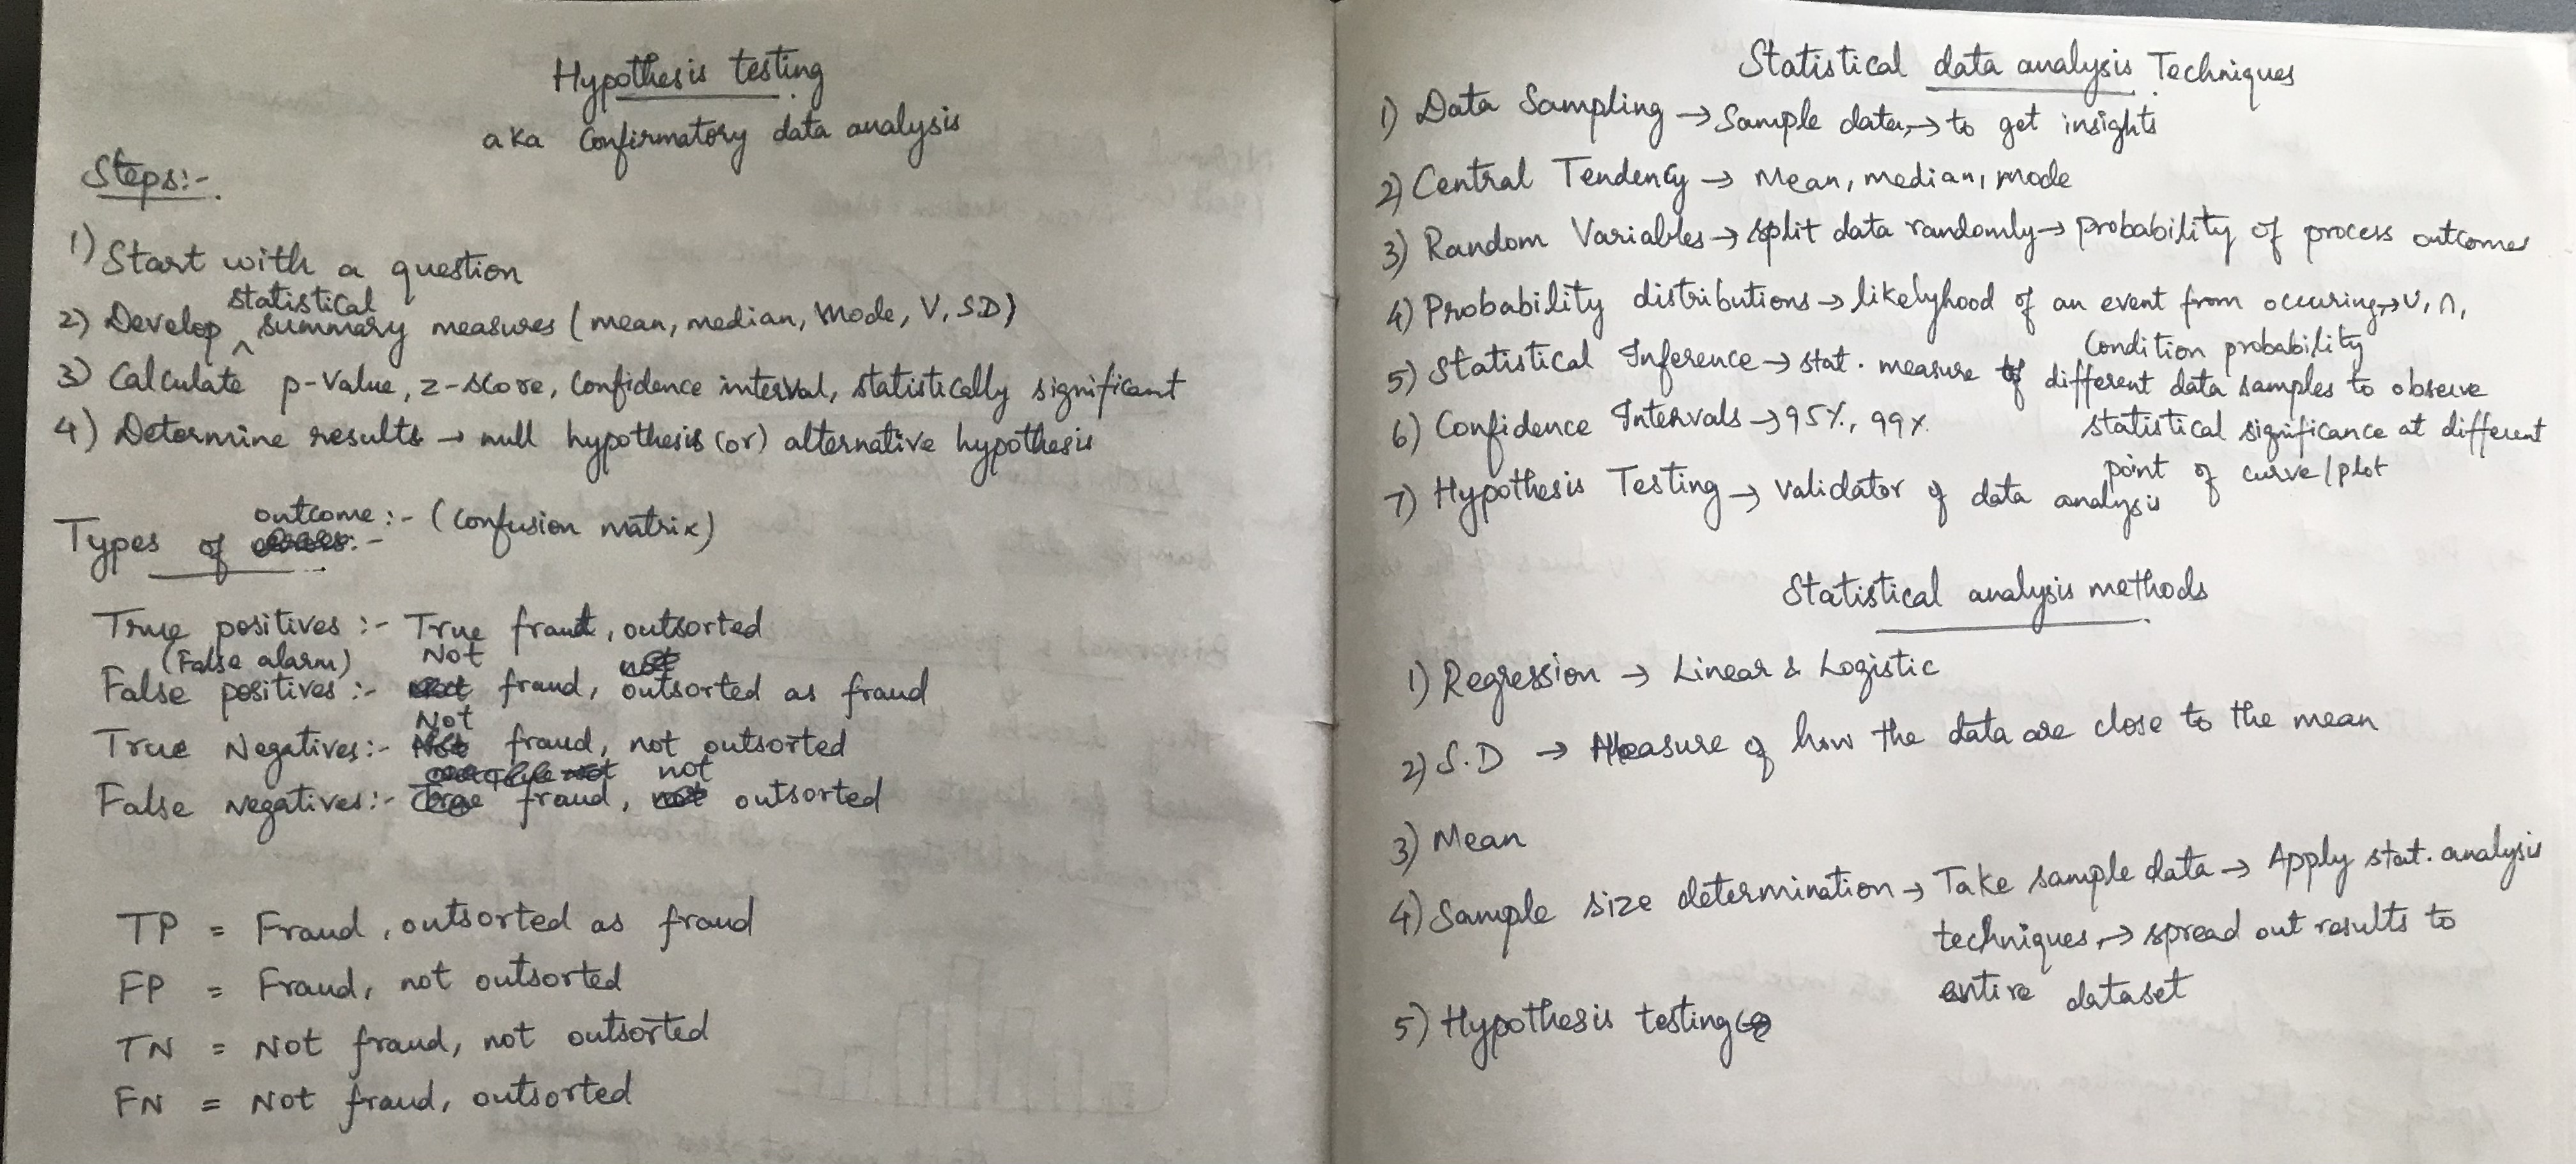 Hypothesis testing
aka Confirmatory data analysis
Steps:-
1) Start with a question
2) Develop statistical summary measures (mean, median, mode, V, SD)
3) Calculate p-value, z-score, Confidence interval, statistically significant
4) Determine results → null hypothesis (or) alternative hypothesis
Types of outcome:- (Confusion matrix)
True positives :- True fraud, outsorted
(False alarm)
False positives :- Not fraud, outsorted as fraud
True Negatives:- Not fraud, not outsorted
False Negatives:- fraud, not outsorted
TP = Fraud, outsorted as fraud
FP = Fraud, not outsorted
TN = Not fraud, not outsorted
FN = Not fraud, outsorted
Statistical data analysis Techniques
1) Data Sampling → Sample data, → to get insights
2) Central Tendency → Mean, median, mode
3) Random Variables → split data randomly → probability of process outcomes
4) Probability distributions → likelyhood of an event from occuring, → ∪, ∩,
Condition probability
5) Statistical Inference → stat. measure of different data samples to observe
statistical significance at different
point of curve/plot
6) Confidence Intervals → 95%, 99%
7) Hypothesis Testing → Validator of data analysis
Statistical analysis methods
1) Regression → Linear & Logistic
2) S.D → Measure of how the data are close to the mean
3) Mean
4) Sample size determination → Take sample data → Apply stat. analysis
techniques, → spread out results to
entire dataset
5) Hypothesis testing